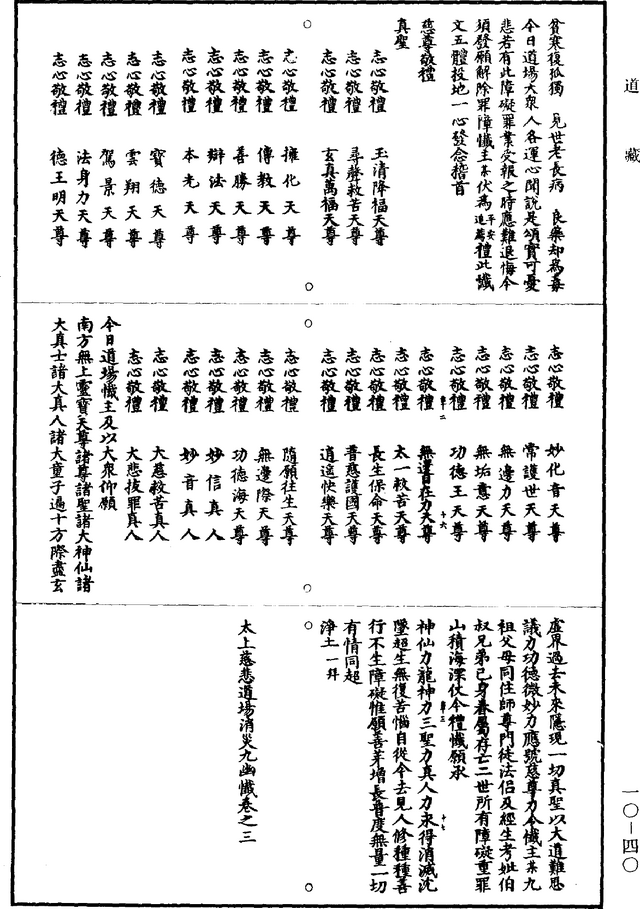 道藏
貧寒復孤獨　見世老長病　良藥却為毒
今日道場大眾人各運心聞說是頌實可憂
悲若有此障礙罪業受報之時應難退悔今
須發願解除罪障懺主某伏為平安追薦禮此懺
文五體投地一心發念稽首
慈尊敬禮
真聖
志心敬禮　玉清降福天尊
志心敬禮　尋聲救苦天尊
志心敬禮　玄真萬福天尊
志心敬禮　擁化天尊
志心敬禮　傳教天尊
志心敬禮　善勝天尊
志心敬禮　辯法天尊
志心敬禮　本光天尊
志心敬禮　寶德天尊
志心敬禮　雲翔天尊
志心敬禮　駕景天尊
志心敬禮　法身力天尊
志心敬禮　德王明天尊
志心敬禮　妙化音天尊
志心敬禮　常護世天尊
志心敬禮　無邊力天尊
志心敬禮　無垢意天尊
志心敬禮　功德王天尊
十六
志心敬禮　無邊自在力天尊
志心敬禮　太一救苦天尊
志心敬禮　長生保命天尊
志心敬禮　普慈護國天尊
志心敬禮　逍遙快樂天尊
志心敬禮　隨願往生天尊
志心敬禮　無邊際天尊
志心敬禮　功德海天尊
志心敬禮　妙信真人
志心敬禮　妙音真人
志心敬禮　大慈救苦真人
志心敬禮　大悲拔罪真人
今日道場懺主及以大眾仰願
南方無上靈寶天尊諸尊諸聖諸大神仙諸
大真士諸大真人諸大童子遍十方際盡玄
虛界過去未來隱現一切真聖以大道難思
議力功德微妙力應號慈尊力令懺主某九
祖父母同住師尊門徒法侶及經生考妣伯
叔兄弟己身眷屬存亡二世所有障礙重罪
山積海深仗今禮懺願承
十七
神仙力龍神力三聖力真人力永得消滅沉
墜超生無復苦惱自從今去見人修種種善
行不生障礙惟願善芽增長普度無量一切
有情同超
淨土一拜
太上慈悲道場消災九幽懺卷之三
一〇—四〇